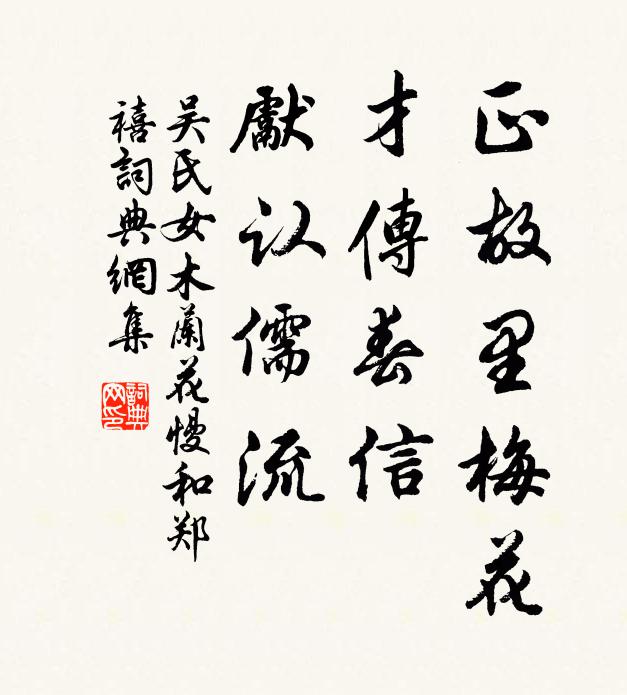 正故里梅花
才傳春信
獻认儒流
吴氏女木蘭花慢和郑
禧詞典網集
詞典
网印